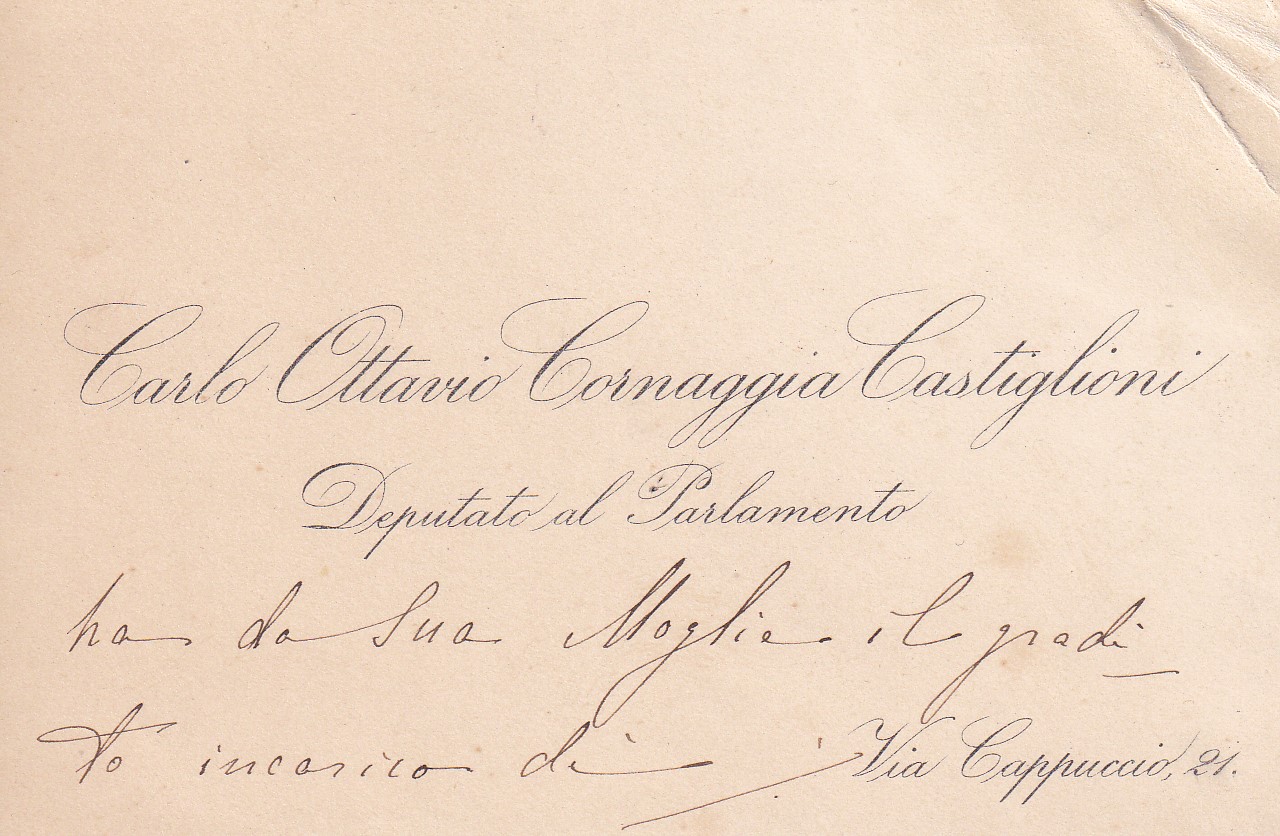 Carlo Ottavio Cornaggia Castiglioni
Deputato al Parlamento
ha da Sua Moglie il gradi_
to incarico di
Via Cappuccio, 21.